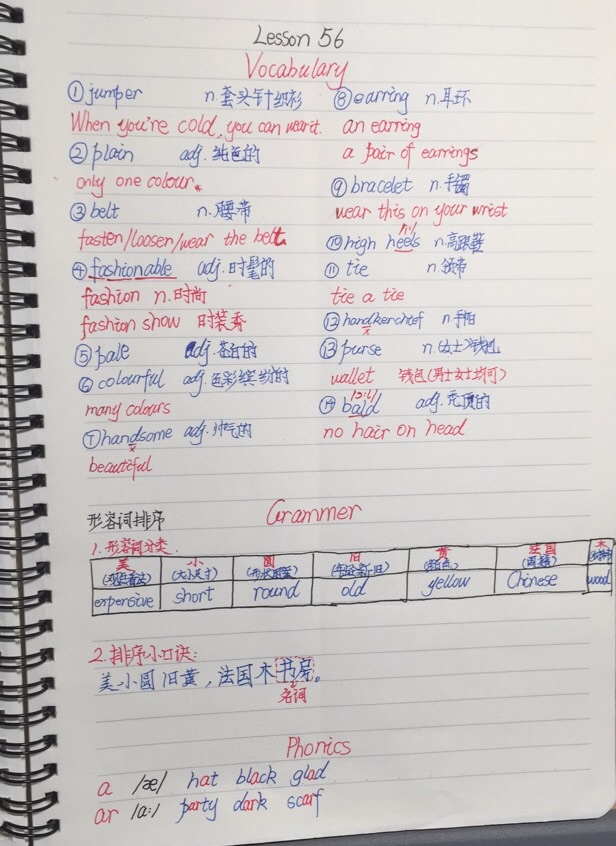 Lesson 56
Vocabulary
①jumper n.套头针织衫
When you're cold, you can wear it.
②plain adj.纯色的
only one colour.
③belt n.腰带
fasten/looser/wear the belt
④fashionable adj.时髦的
fashion n.时尚
fashion show 时装秀
⑤pale adj.苍白的
⑥colourful adj.色彩缤纷的
many colours
⑦handsome adj.帅气的
x
beauteful
⑧earring n.耳环
an earring
a pair of earrings
⑨bracelet n.手镯
wear this on your wrist
/i:/
⑩high heels n.高跟鞋
⑪tie n.领带
tie a tie
⑫handkerchief n.手帕
x
⑬purse n.(女士)钱包
wallet 钱包(男士女士均可)
/ɔ:l/
⑭bald adj.秃顶的
no hair on head
Grammer
形容词排序
1.形容词分类.
美 小 圆 旧 黄 法国 木
(观点看法) (大小尺寸) (年龄新旧) (颜色) (国籍)
expensive short round old yellow Chinese wood
2.排序小口诀:
美小圆旧黄,法国木书房。
名词
Phonics
a /æ/ hat black glad
ar /a:/ party dark scarf